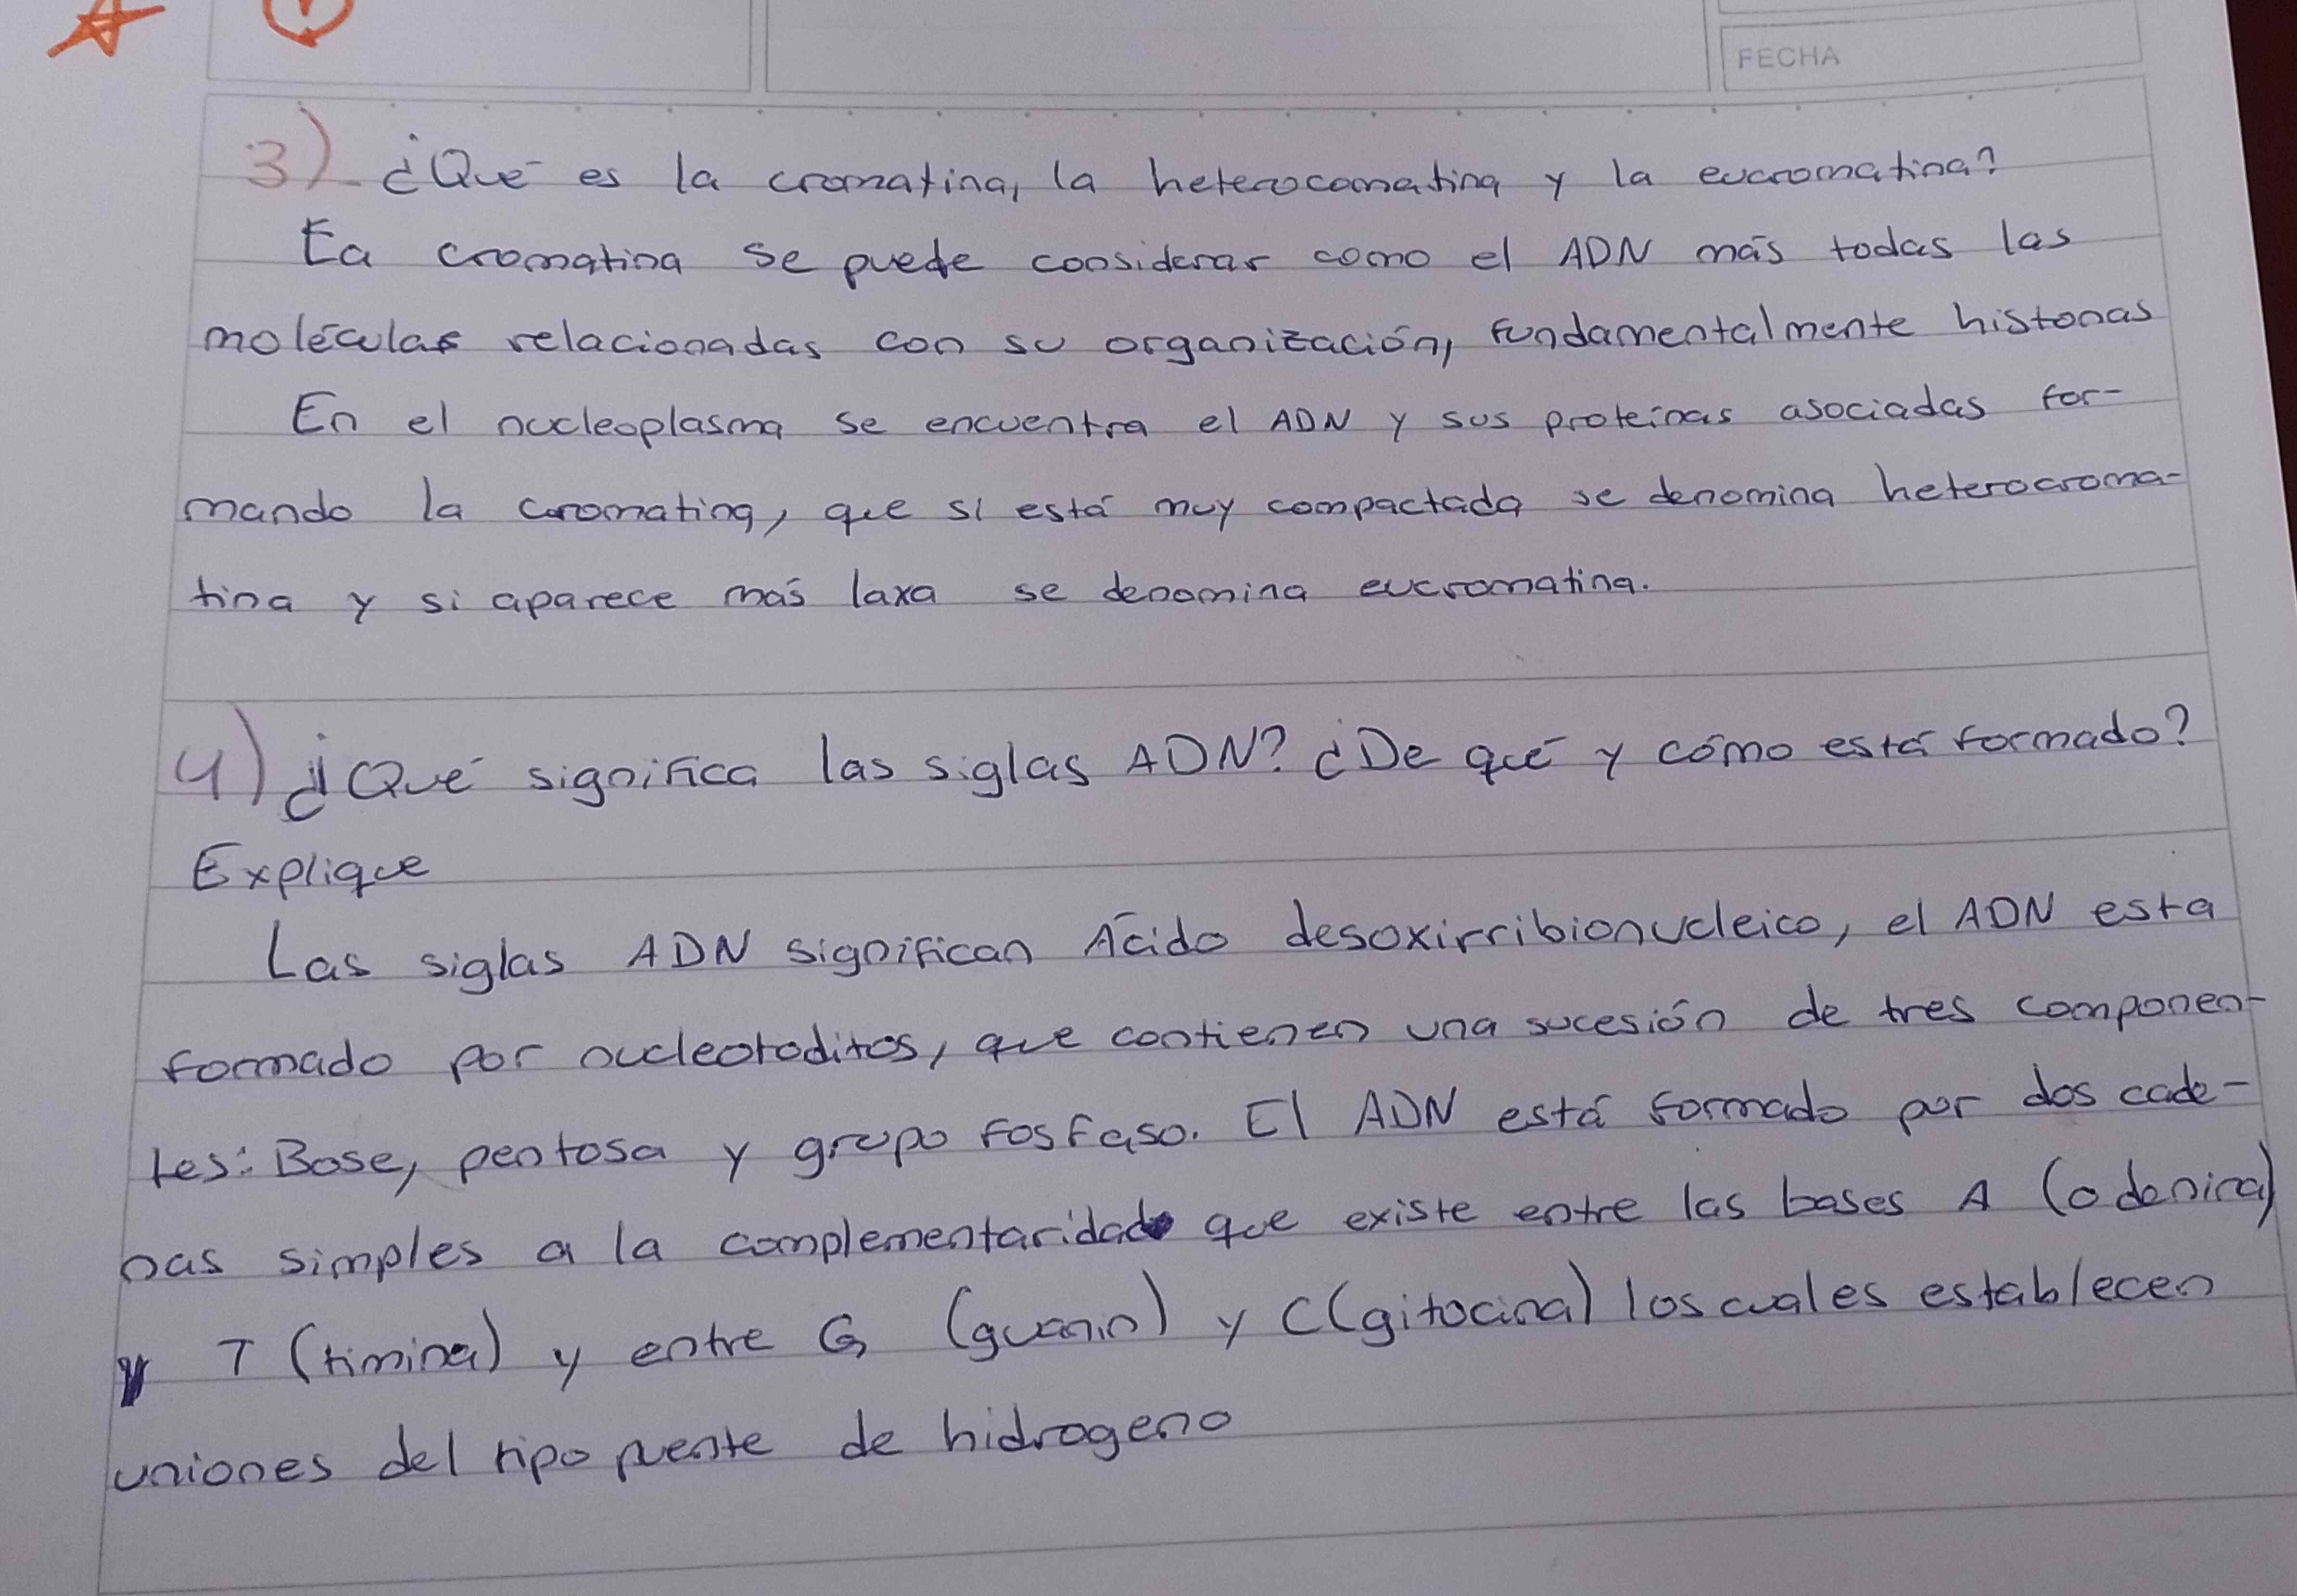 FECHA
3) ¿Qué es la cromatina, la heterocomatina y la eucromatina?
La cromatina se puede considerar como el ADN más todas las
moléculas relacionadas con su organización, fundamentalmente histonas
En el nucleoplasma se encuentra el ADN y sus proteínas asociadas for-
mando la cromatina, que si está muy compactada se denomina heterocroma-
tina y si aparece más laxa se denomina eucromatina.
4) ¿Qué significa las siglas ADN? ¿De qué y cómo está formado?
Explique
Las siglas ADN significan Ácido desoxirribionucleico, el ADN esta
formado por nucleotoditos, que contienen una sucesión de tres componen-
tes: Base, pentosa y grupo fosfaso. El ADN está formado por dos cade-
nas simples a la complementaridad que existe entre las bases A (adenina)
y T (timina) y entre G (guanin) y C (gitocina) los cuales establecen
uniones del tipo puente de hidrogeno